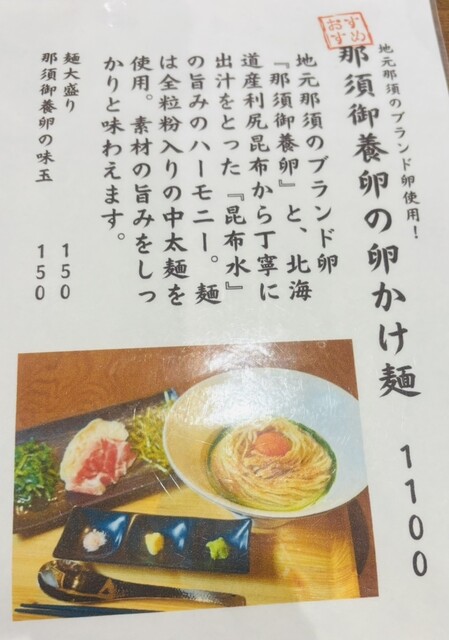 おすすめ
地元那須のブランド卵使用！
那須御養卵の卵かけ麺 1100
地元那須のブランド卵
『那須御養卵』と、北海
道産利尻昆布から丁寧に
出汁をとった『昆布水』
の旨みのハーモニー。麺
は全粒粉入りの中太麺を
使用。素材の旨みをしっ
かりと味わえます。
麺大盛り 150
那須御養卵の味玉 150